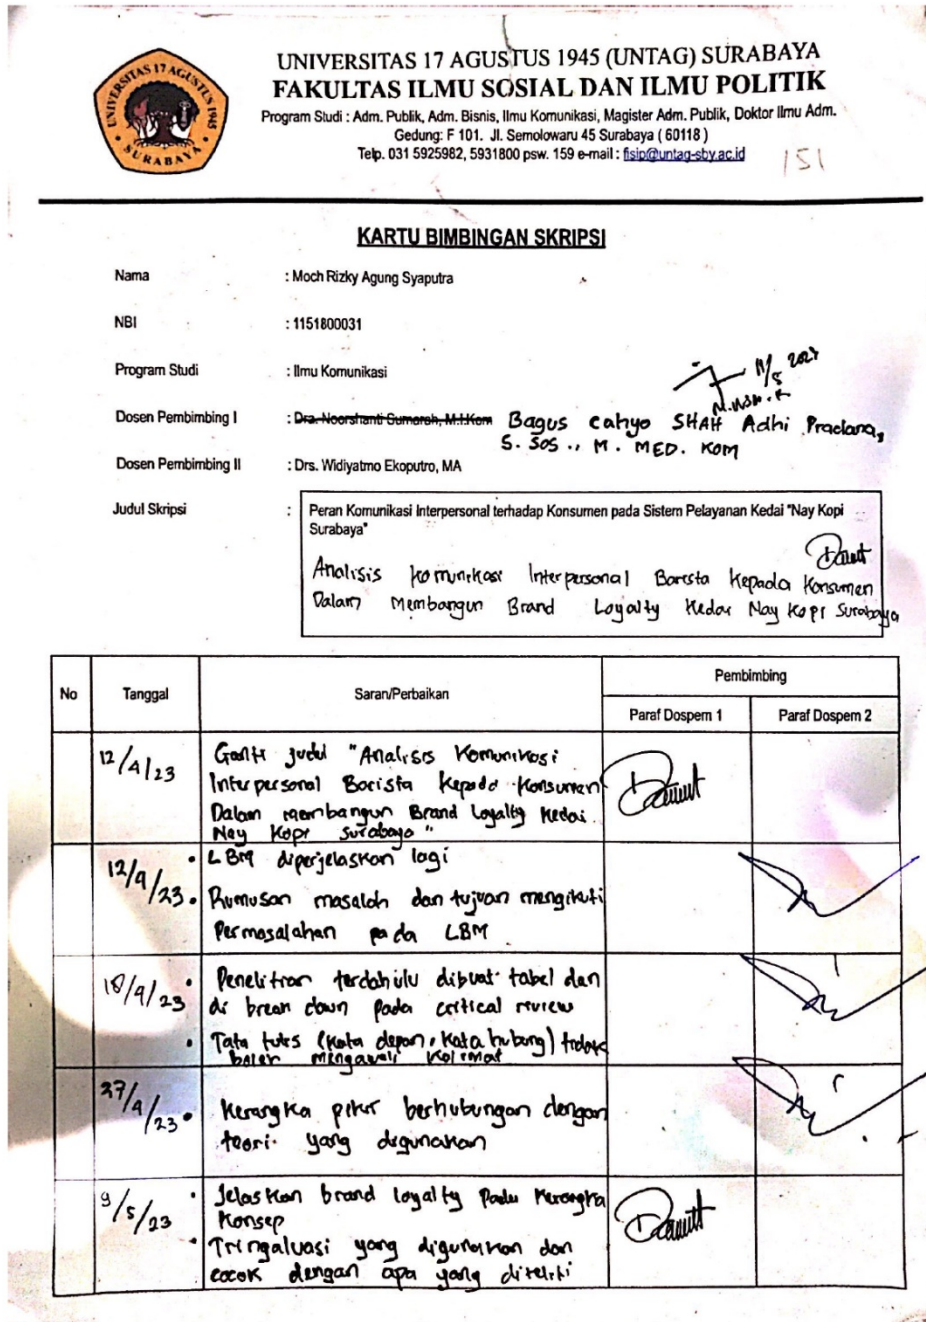 UNIVERSITAS 17 AGUSTUS 1945
SURABAYA
UNIVERSITAS 17 AGUSTUS 1945 (UNTAG) SURABAYA
FAKULTAS ILMU SOSIAL DAN ILMU POLITIK
Program Studi : Adm. Publik, Adm. Bisnis, Ilmu Komunikasi, Magister Adm. Publik, Doktor Ilmu Adm.
Gedung: F 101. Jl. Semolowaru 45 Surabaya ( 60118 )
Telp. 031 5925982, 5931800 psw. 159 e-mail : fisip@untag-sby.ac.id
151
KARTU BIMBINGAN SKRIPSI
Nama : Moch Rizky Agung Syaputra
NBI : 1151800031
Program Studi : Ilmu Komunikasi
11/5 2023
Dosen Pembimbing I : Dra. Noorshanti Sumarah, M.I.Kom Bagus cahyo SHAH Adhi Pradana,
S. SOS., M. MED. KOM
Dosen Pembimbing II : Drs. Widiyatmo Ekoputro, MA
Judul Skripsi : Peran Komunikasi Interpersonal terhadap Konsumen pada Sistem Pelayanan Kedai "Nay Kopi
Surabaya"
Analisis Komunikasi Interpersonal Barista Kepada Konsumen
Dalam Membangun Brand Loyalty Kedai Nay Kopi Surabaya
No Tanggal Saran/Perbaikan Pembimbing
Paraf Dospem 1 Paraf Dospem 2
12/4/23 Ganti judul "Analisis Komunikasi
Interpersonal Barista Kepada Konsumen
Dalam membangun Brand Loyalty Kedai
Nay Kopi Surabaya"
12/4/23 • LBM diperjelaskan lagi
• Rumusan masalah dan tujuan mengikuti
Permasalahan pada LBM
18/4/23 • Penelitian terdahulu dibuat tabel dan
di brean down pada critical review
• Tata tulis (kata depan, kata hubung) tidak
boleh mengawali kalimat
27/4/23 • Kerangka pikir berhubungan dengan
teori yang digunakan
9/5/23 • Jelaskan brand loyalty pada Kerangka
Konsep
• Tringaluasi yang digunakan dan
cocok dengan apa yang diteliti